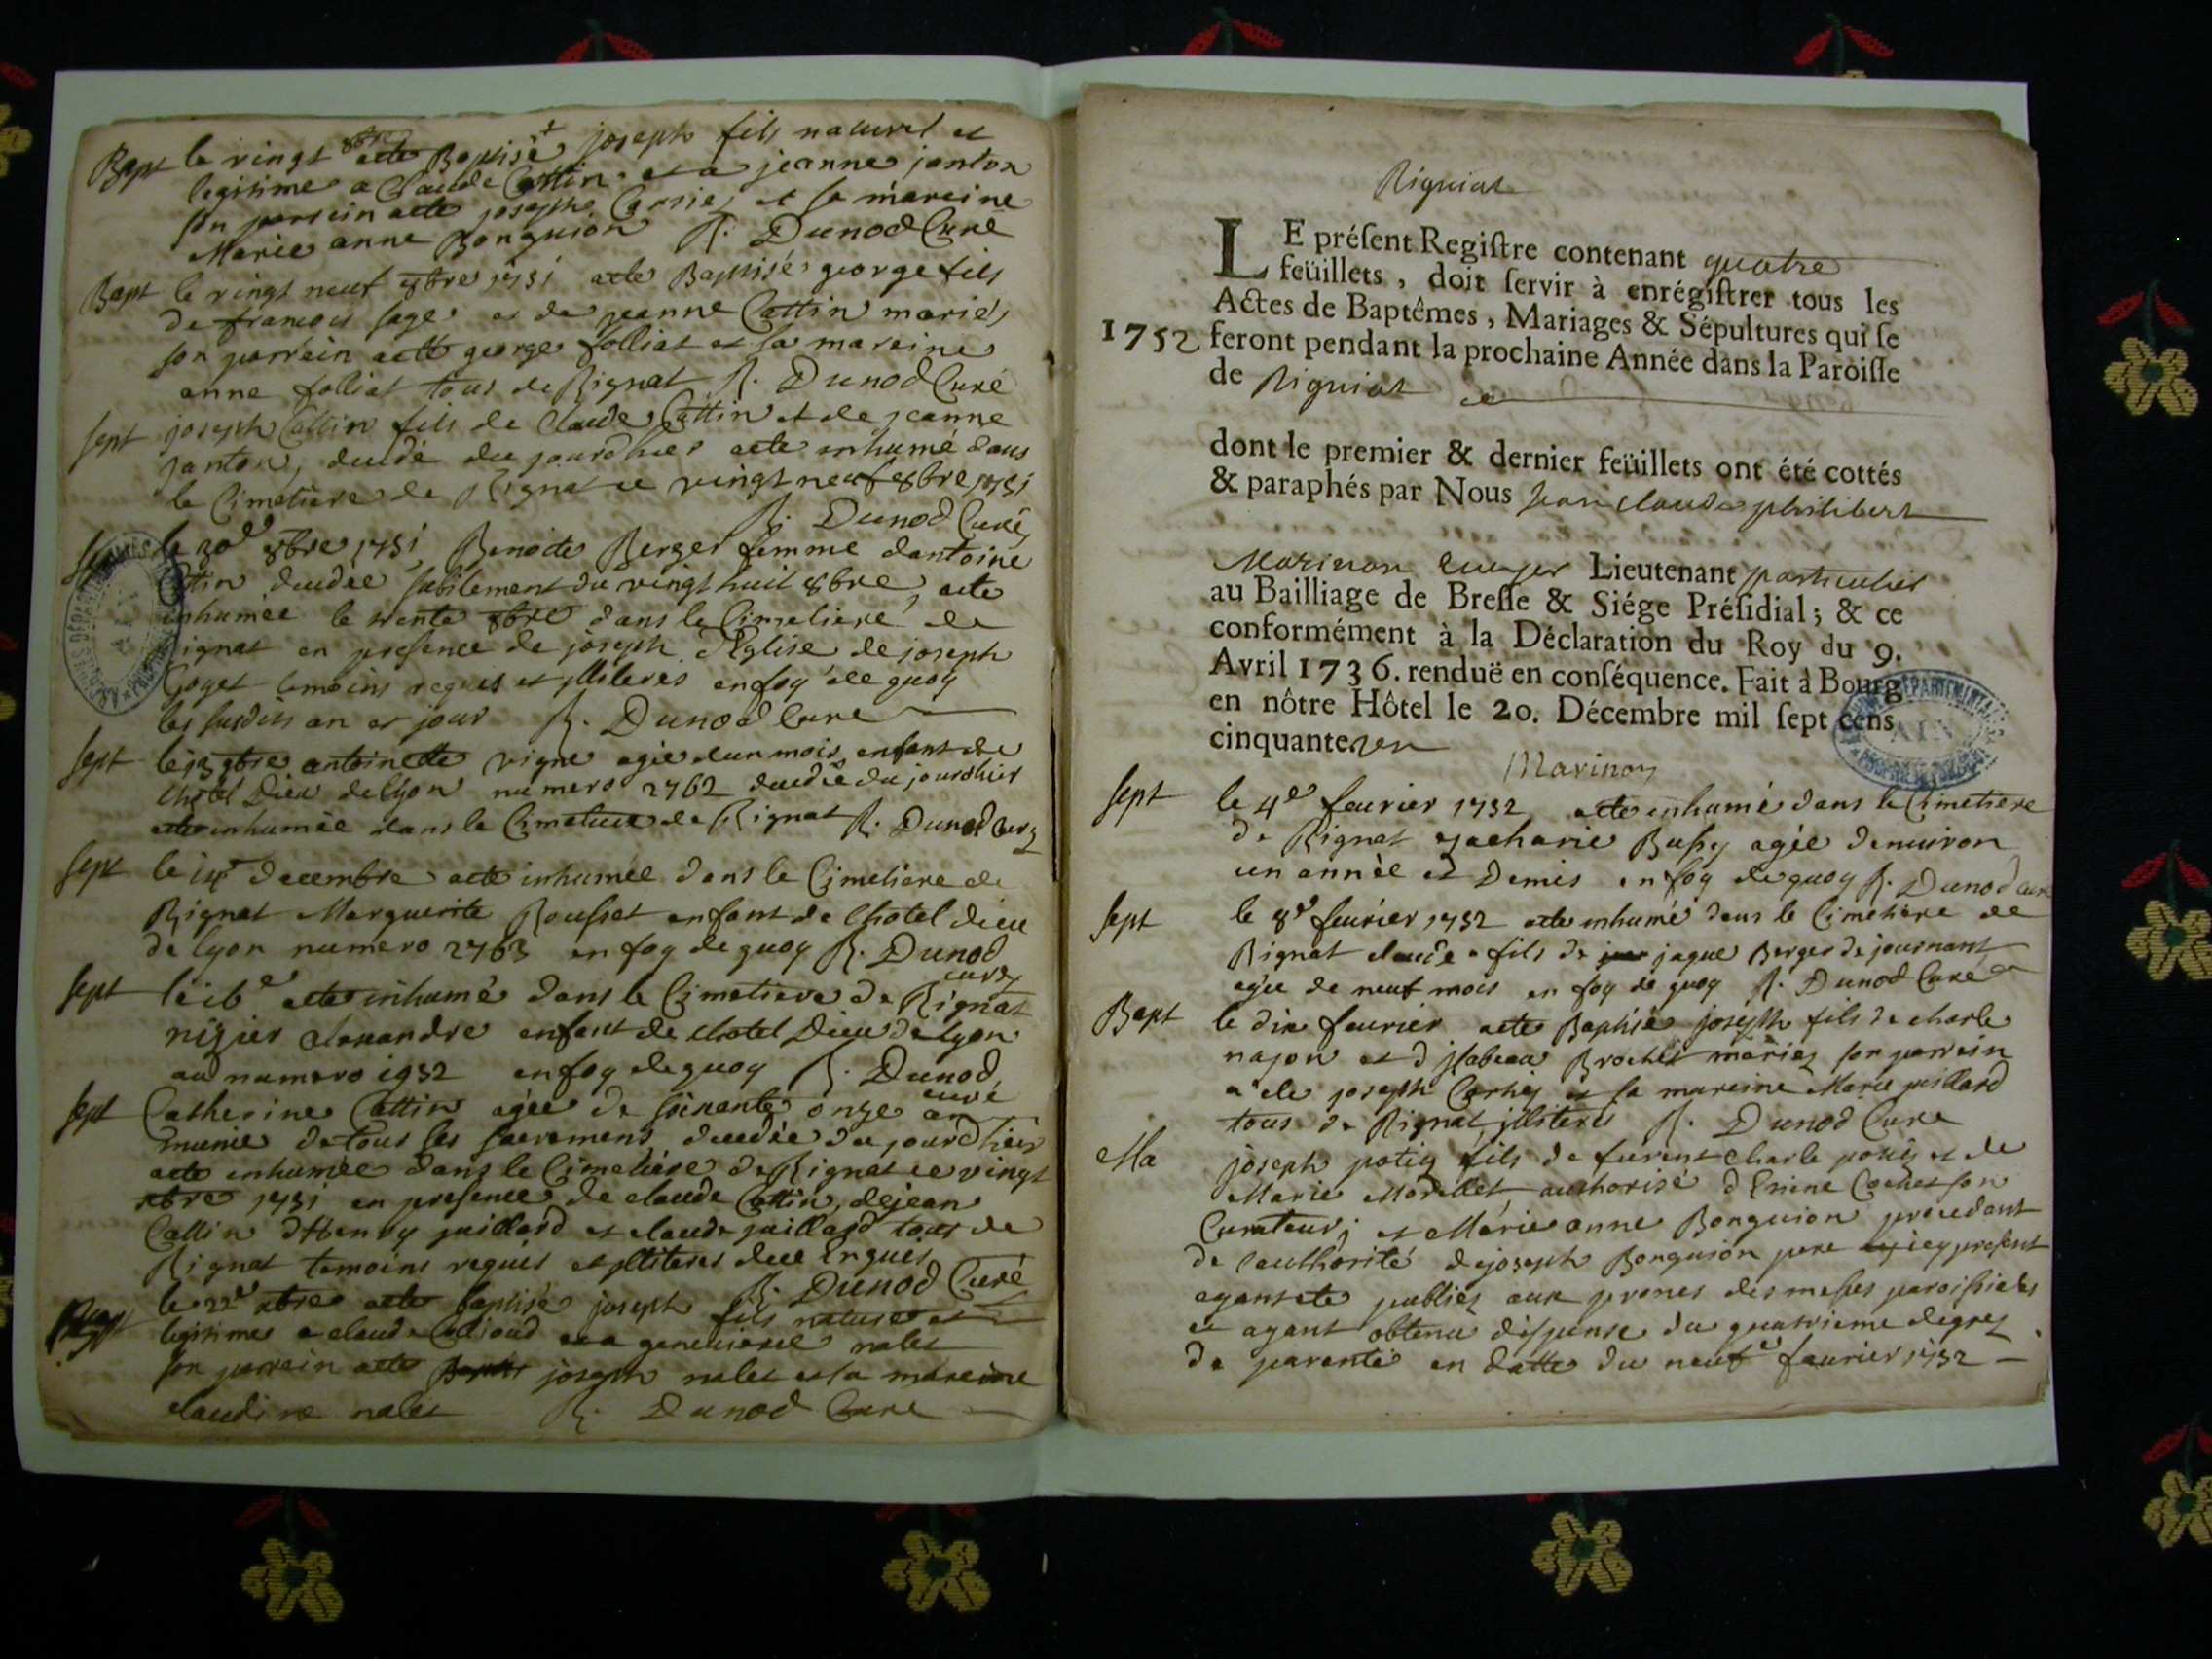 Bapt le vingt 8bre a ete Baptisé joseph fils naturel et
legitime a Claude Cattin et a jeanne janton
son parrein a ete joseph et sa mareine
Marie anne Bonguion R. Dunod Curé
Bapt le vingt neuf 8bre 1751 a ete Baptisé george fils
de francois sage et de jeanne Cattin mariés
son parrein a ete george folliat et sa mareine
anne folliat tous de Rignat R. Dunod Curé
sept joseph Cattin fils de Claude Cattin et de jeanne
janton, decedé du jourdhier a ete inhumé dans
le Cimetiere de Rignat ce vingt neuf 8bre 1751
R. Dunod Curé
le 30e 8bre 1751 Benoite Berger femme dantoine
Cattin decedee subitement du vingt huit 8bre, a ete
inhumée le trente 8bre dans le Cimetiere de
Rignat en presence de joseph de joseph
goyet temoins requis et illiterés en foy de quoy
les susdits an et jour R. Dunod Cure
sept le 13 9bre antoinette vigne agée dun mois enfant de
lhotel Dieu de lyon numero 2762 decedée du jourdhier
a ete inhumée dans le Cimetiere de Rignat R. Dunod Curé
sept le 14e decembre a ete inhumée dans le Cimetiere de
Rignat Marguerite Rousset enfant de lhotel dieu
de lyon numero 2763 en foy de quoy R. Dunod
curé
sept le 16e a ete inhumé dans le Cimetiere de Rignat
nizier alexandre enfant de lhotel Dieu de lyon
au numero 1932 en foy de quoy R. Dunod
curé
sept Catherine Cattin agée de soixante onze an
munie de tous les sacremens decedée du jourdhier
a ete inhumée dans le Cimetiere de Rignat ce vingt
xbre 1751 en presence de claude Cattin, de jean
Cattin dHenry juillard et claude juillard tous de
Rignat temoins requis et illiteres deue Enquis
R. Dunod Curé
Bapt le 22e xbre a ete baptisé joseph fils naturel et
legitime a claude et a genevieve nalet
son parrein a ete joseph nalet et sa mareine
claudine nalet R. Dunod Cure
Rigniat
LE présent Registre contenant quatre
feüillets, doit servir à enrégistrer tous les
Actes de Baptêmes, Mariages & Sépultures qui se
1752 feront pendant la prochaine Année dans la Paroisse
de Rigniat
dont le premier & dernier feüillets ont été cottés
& paraphés par Nous Jean claude philibert
Marinon Lieutenant particulier
au Bailliage de Bresse & Siége Présidial; & ce
conformément à la Déclaration du Roy du 9.
Avril 1736. renduë en conséquence. Fait à Bourg
en nôtre Hôtel le 20. Décembre mil sept cens
cinquante un
Marinon
sept le 4e fevrier 1752 a ete inhumé dans le Cimetiere
de Rignat zacharie Bussy agée denviron
un année et Demis en foy de quoy R. Dunod Curé
sept le 8e fevrier 1752 a ete inhumé dans le Cimetiere de
Rignat claude fils de jaque Berger de journant
agée de neuf mois en foy de quoy R. Dunod Curé
Bapt le dix fevrier a ete Baptisé joseph fils de charle
najon et d isabeau Brochet mariés son parrein
a ete joseph et sa mareine Marie juillard
tous de Rignat illiteres R. Dunod Cure
Ma joseph fils de furent Charle et de
Marie Morellet authorisé d Etiene Cochet son
Curateur; et Marie anne Bonguion procedant
de lauthorité de joseph Bonguion pere icy present
ayant ete publiez aux prones des messes paroissiales
et ayant obtenu dispense du quatrieme degrez
de parenté en datte du neufe fevrier 1752